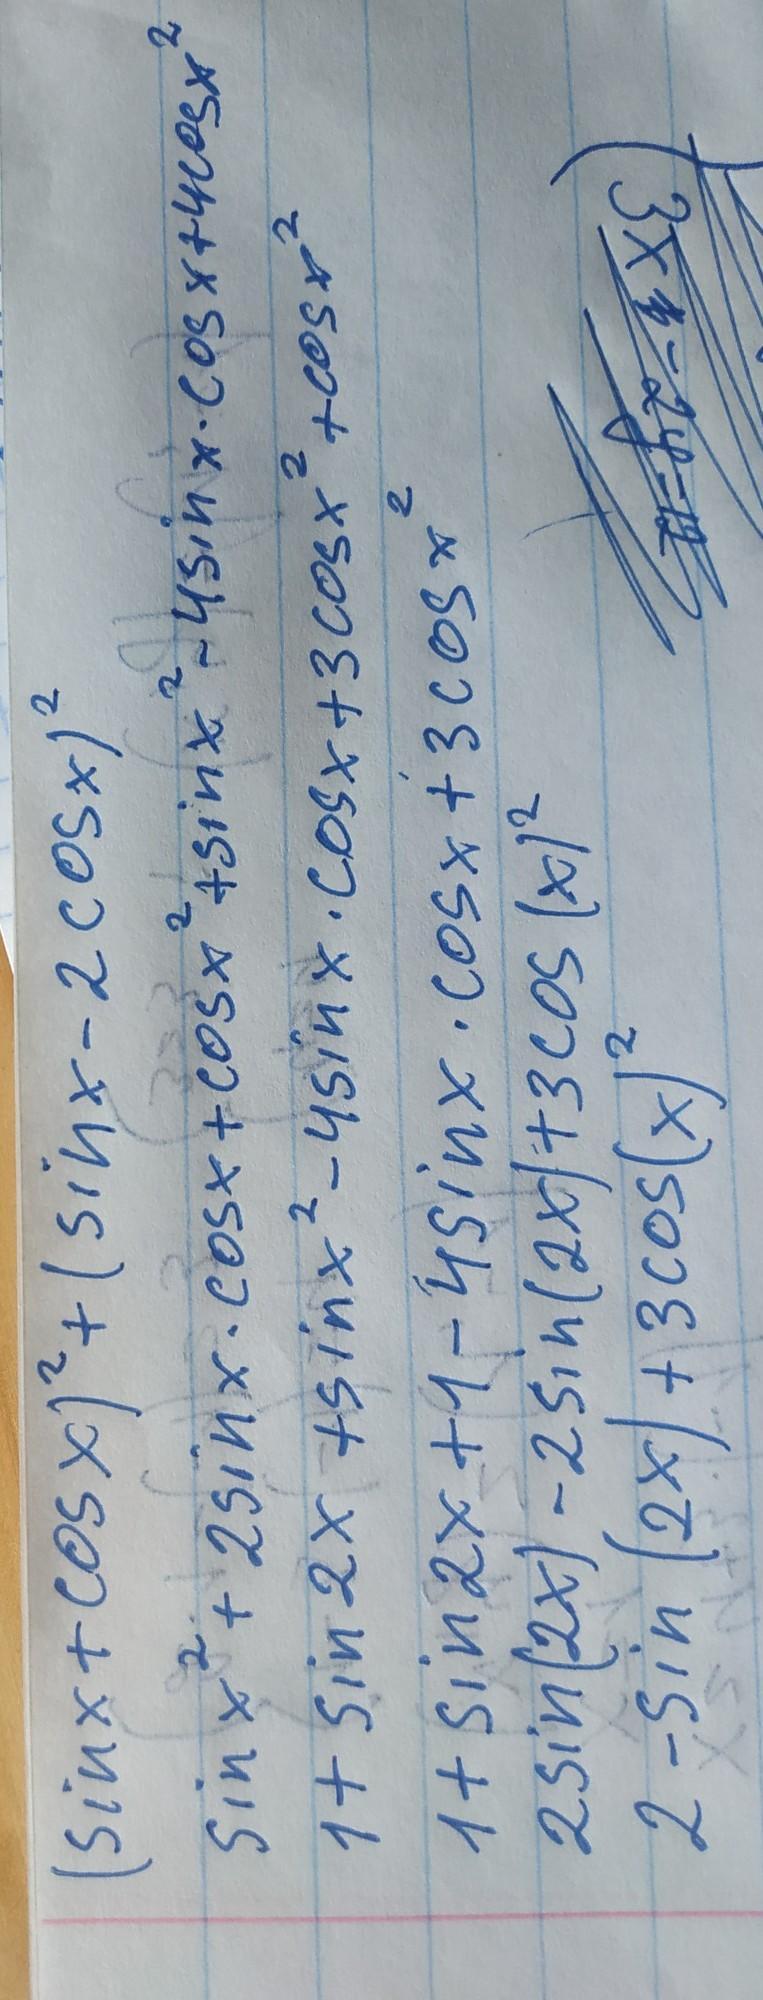 (sinx+cosx)²+(sinx-2cosx)²
sinx²+2sinx·cosx+cosx²+sinx²-4sinx·cosx+4cosx²
1+sin2x+sinx²-4sinx·cosx+3cosx²+cosx²
1+sin2x+1-4sinx·cosx+3cosx²
2sin(2x)-2sin(2x)+3cos(x)²
2-sin(2x)+3cos(x)²